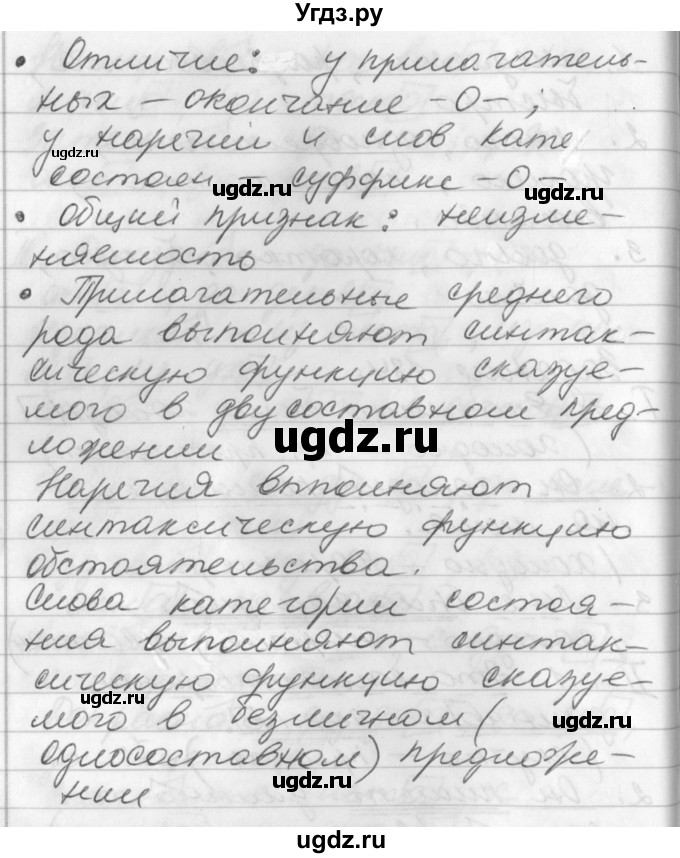 Угдз.ру
• Отличие: у прилагатель-
ных – окончание -О-;
у наречий и слов кате
состоян – суффикс -О-
• Общий признак: неизме-
няемость
• Прилагательные среднего
рода выполняют синтак-
сическую функцию сказуе-
мого в двусоставном пред-
ложении
Наречия выполняют
синтаксическую функцию
обстоятельства.
Слова категории состоя-
ния выполняют синтак-
сическую функцию сказуе-
мого в безличном (
односоставном) предложе-
нии
ugdz.ru
ugdz.ru
ugdz.ru
ugdz.ru
ugdz.ru
ugdz.ru
ugdz.ru
ugdz.ru
ugdz.ru